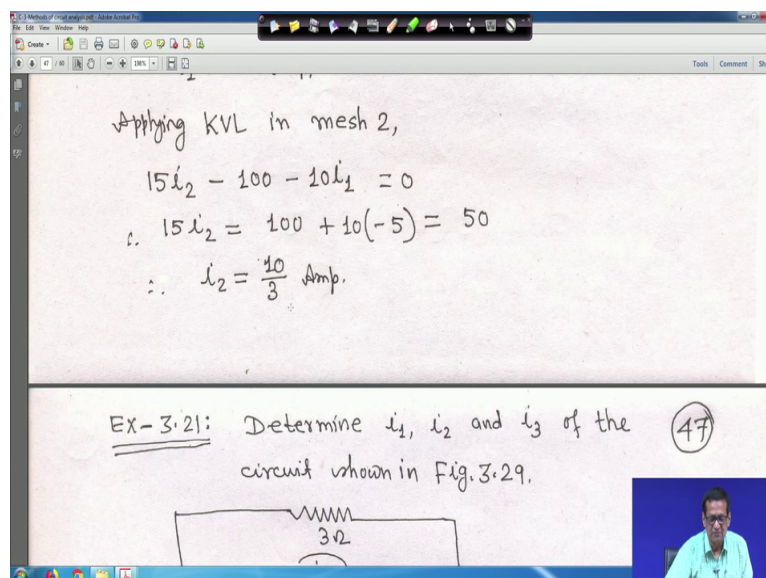 C-3-Methods of circuit analysis.pdf - Adobe Acrobat Pro
File Edit View Window Help
Create
47 / 60 198% Tools Comment Sh
Applying KVL in mesh 2,
15i₂ - 100 - 10i₁ = 0
∴ 15i₂ = 100 + 10(-5) = 50
∴ i₂ = 10/3 Amp.
EX-3.21: Determine i₁, i₂ and i₃ of the 47
circuit shown in Fig. 3.29.
3Ω